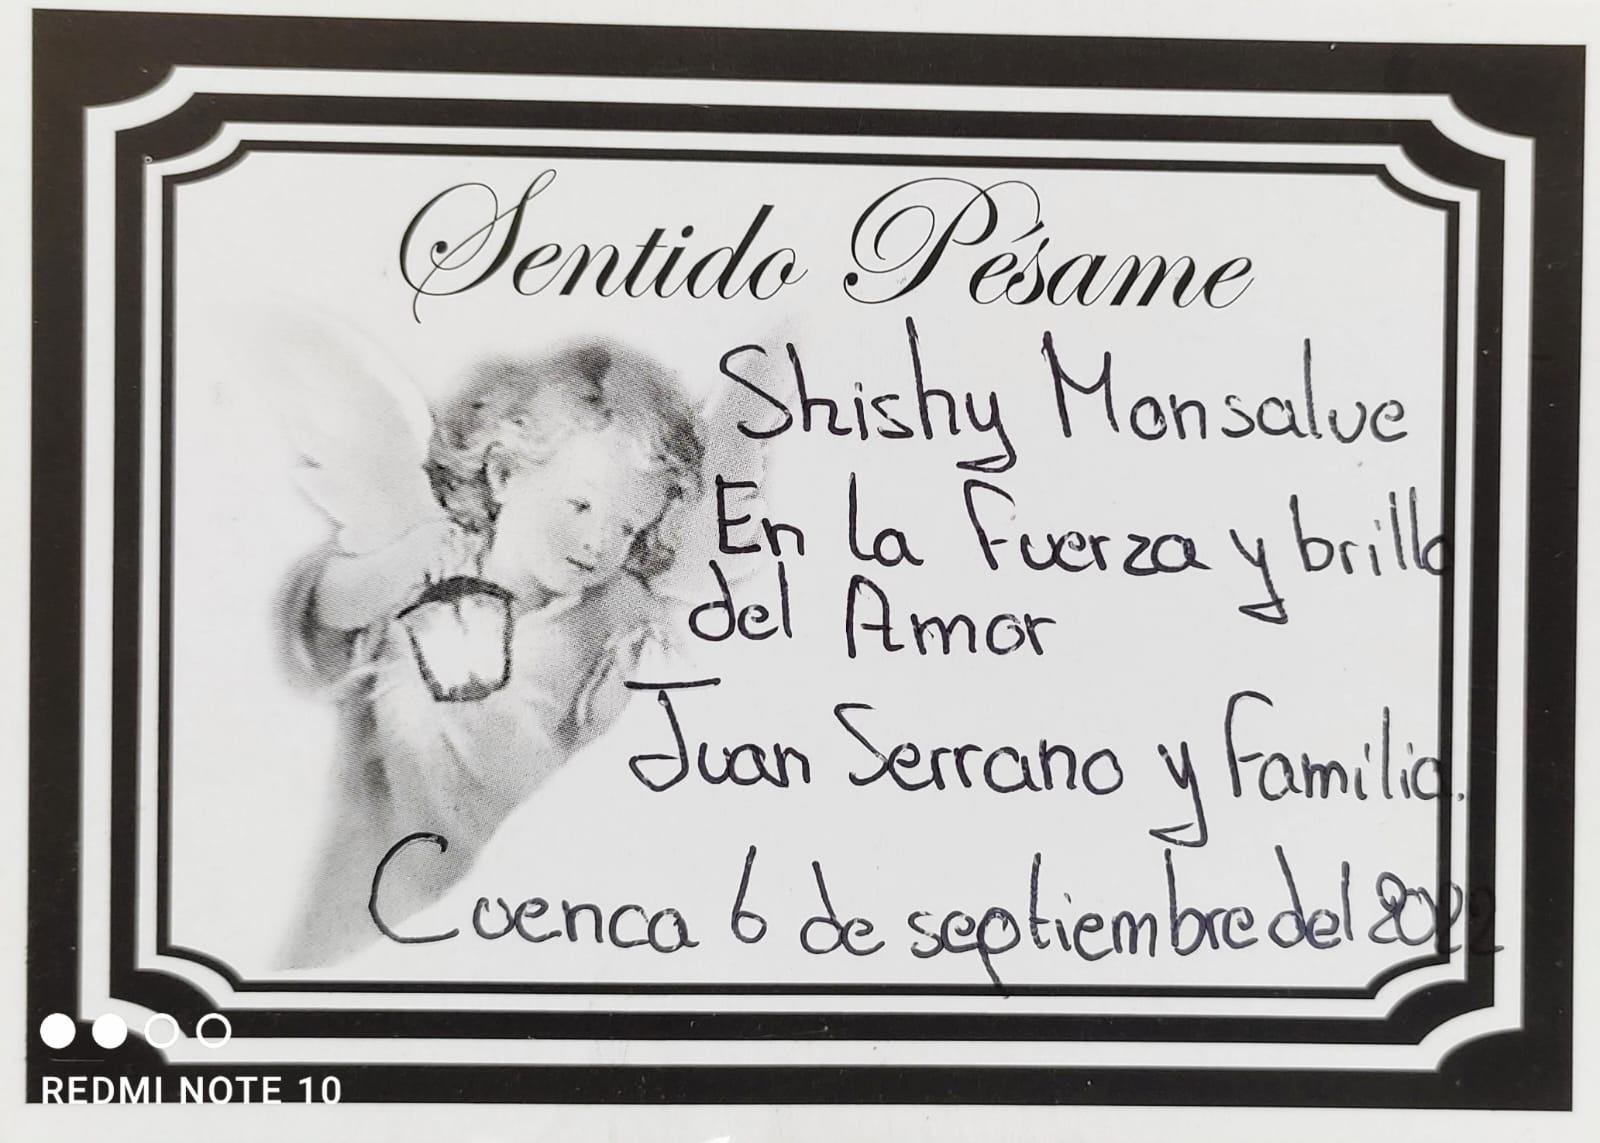 Sentido Pésame
Shishy Monsalve
En la Fuerza y brillo
del Amor
Juan Serrano y Familia.
Cuenca 6 de septiembre del 2022
REDMI NOTE 10